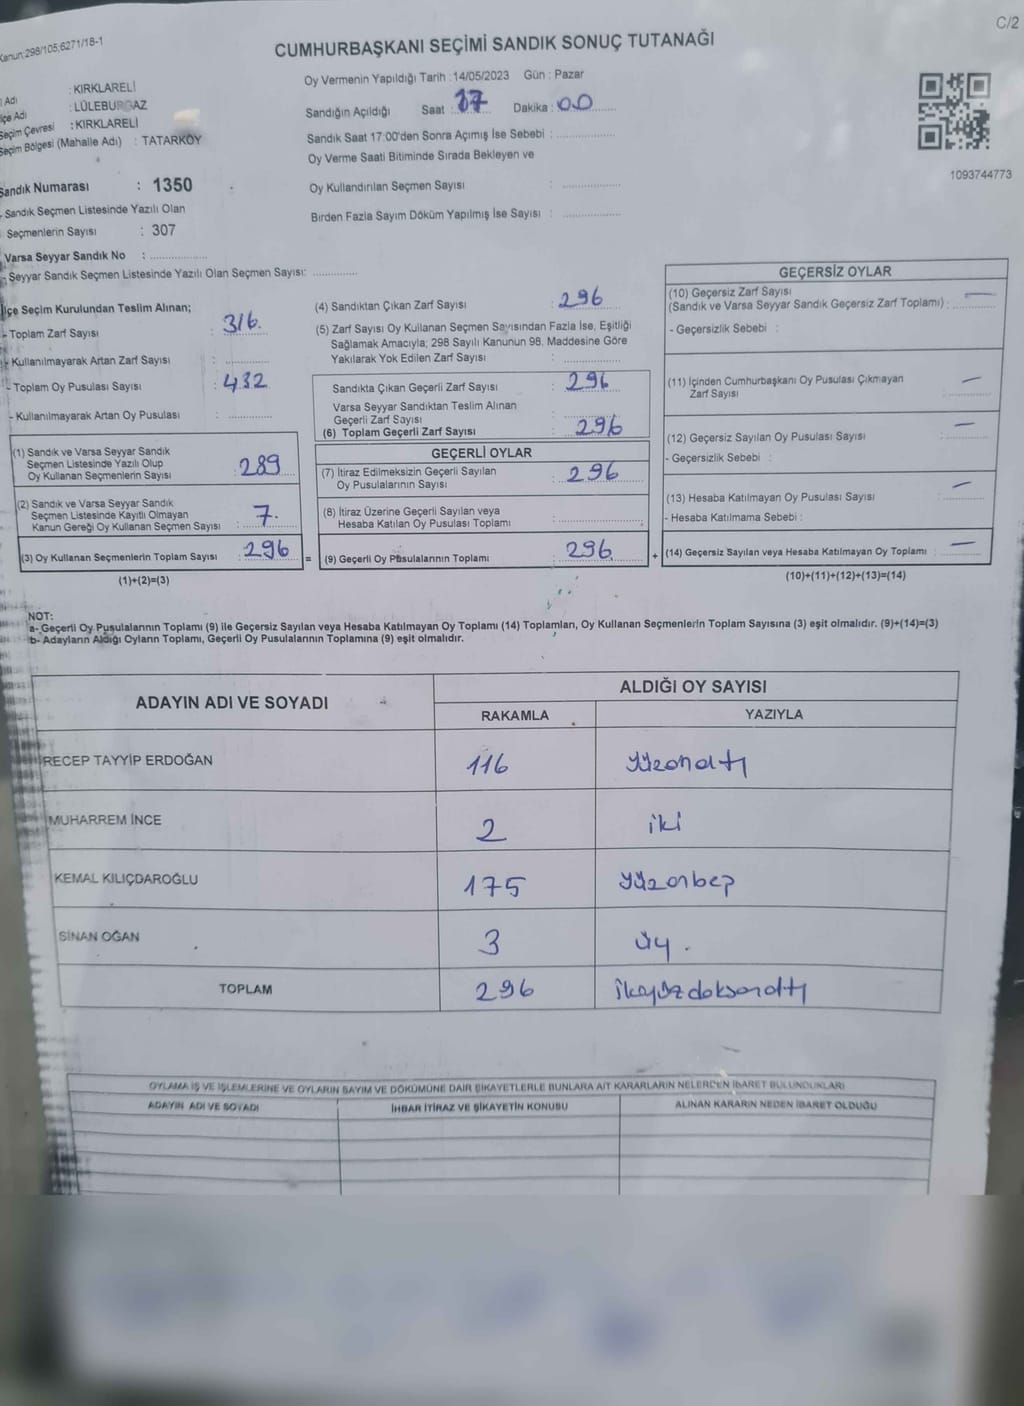 Kanun:298/105,6271/18-1
C/2
CUMHURBAŞKANI SEÇİMİ SANDIK SONUÇ TUTANAĞI
Adı : KIRKLARELİ
İlçe Adı : LÜLEBURGAZ
Seçim Çevresi : KIRKLARELİ
Seçim Bölgesi (Mahalle Adı) : TATARKÖY
Sandık Numarası : 1350
- Sandık Seçmen Listesinde Yazılı Olan
Seçmenlerin Sayısı : 307
Varsa Seyyar Sandık No :
- Seyyar Sandık Seçmen Listesinde Yazılı Olan Seçmen Sayısı:
Oy Vermenin Yapıldığı Tarih :14/05/2023 Gün : Pazar
Sandığın Açıldığı Saat : 17 Dakika : 00
Sandık Saat 17:00'den Sonra Açımış İse Sebebi :
Oy Verme Saati Bitiminde Sırada Bekleyen ve
Oy Kullandırılan Seçmen Sayısı :
Birden Fazla Sayım Döküm Yapılmış İse Sayısı :
1093744773
İlçe Seçim Kurulundan Teslim Alınan;
- Toplam Zarf Sayısı : 316.
- Kullanılmayarak Artan Zarf Sayısı :
- Toplam Oy Pusulası Sayısı : 432
- Kullanılmayarak Artan Oy Pusulası :
(1) Sandık ve Varsa Seyyar Sandık
Seçmen Listesinde Yazılı Olup
Oy Kullanan Seçmenlerin Sayısı : 289
(2) Sandık ve Varsa Seyyar Sandık
Seçmen Listesinde Kayıtlı Olmayan
Kanun Gereği Oy Kullanan Seçmen Sayısı : 7.
(3) Oy Kullanan Seçmenlerin Toplam Sayısı : 296
(1)+(2)=(3)
(4) Sandıktan Çıkan Zarf Sayısı : 296
(5) Zarf Sayısı Oy Kullanan Seçmen Sayısından Fazla İse, Eşitliği
Sağlamak Amacıyla; 298 Sayılı Kanunun 98. Maddesine Göre
Yakılarak Yok Edilen Zarf Sayısı :
Sandıkta Çıkan Geçerli Zarf Sayısı : 296
Varsa Seyyar Sandıktan Teslim Alınan
Geçerli Zarf Sayısı :
(6) Toplam Geçerli Zarf Sayısı : 296
GEÇERLİ OYLAR
(7) İtiraz Edilmeksizin Geçerli Sayılan
Oy Pusulalarının Sayısı : 296
(8) İtiraz Üzerine Geçerli Sayılan veya
Hesaba Katılan Oy Pusulası Toplamı :
= (9) Geçerli Oy Pusulalarının Toplamı : 296
GEÇERSİZ OYLAR
(10) Geçersiz Zarf Sayısı
(Sandık ve Varsa Seyyar Sandık Geçersiz Zarf Toplamı) : —
- Geçersizlik Sebebi :
(11) İçinden Cumhurbaşkanı Oy Pusulası Çıkmayan
Zarf Sayısı : —
(12) Geçersiz Sayılan Oy Pusulası Sayısı : —
- Geçersizlik Sebebi :
(13) Hesaba Katılmayan Oy Pusulası Sayısı : —
- Hesaba Katılmama Sebebi :
+ (14) Geçersiz Sayılan veya Hesaba Katılmayan Oy Toplamı : —
(10)+(11)+(12)+(13)=(14)
NOT:
a- Geçerli Oy Pusulalarının Toplamı (9) ile Geçersiz Sayılan veya Hesaba Katılmayan Oy Toplamı (14) Toplamları, Oy Kullanan Seçmenlerin Toplam Sayısına (3) eşit olmalıdır. (9)+(14)=(3)
b- Adayların Aldığı Oyların Toplamı, Geçerli Oy Pusulalarının Toplamına (9) eşit olmalıdır.
ADAYIN ADI VE SOYADI
ALDIĞI OY SAYISI
RAKAMLA YAZIYLA
RECEP TAYYİP ERDOĞAN 116 yüzonaltı
MUHARREM İNCE 2 iki
KEMAL KILIÇDAROĞLU 175 yüzonbeş
SİNAN OĞAN 3 üç.
TOPLAM 296 ikiyüzdoksanaltı
OYLAMA İŞ VE İŞLEMLERİNE VE OYLARIN SAYIM VE DÖKÜMÜNE DAİR ŞİKAYETLERLE BUNLARA AİT KARARLARIN NELERDEN İBARET BULUNDUKLARI
ADAYIN ADI VE SOYADI İHBAR İTİRAZ VE ŞİKAYETİN KONUSU ALINAN KARARIN NEDEN İBARET OLDUĞU